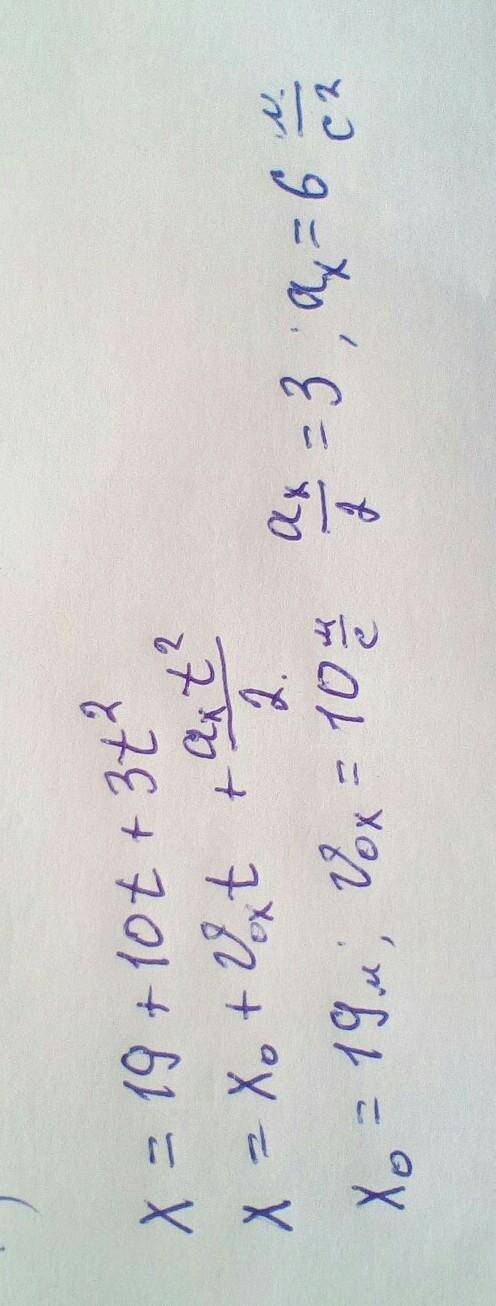 x = 19 + 10t + 3t²
x = x₀ + v₀ₓt + aₓt²/2
x₀ = 19 м; v₀ₓ = 10 м/с aₓ/2 = 3; aₓ = 6 м/с²